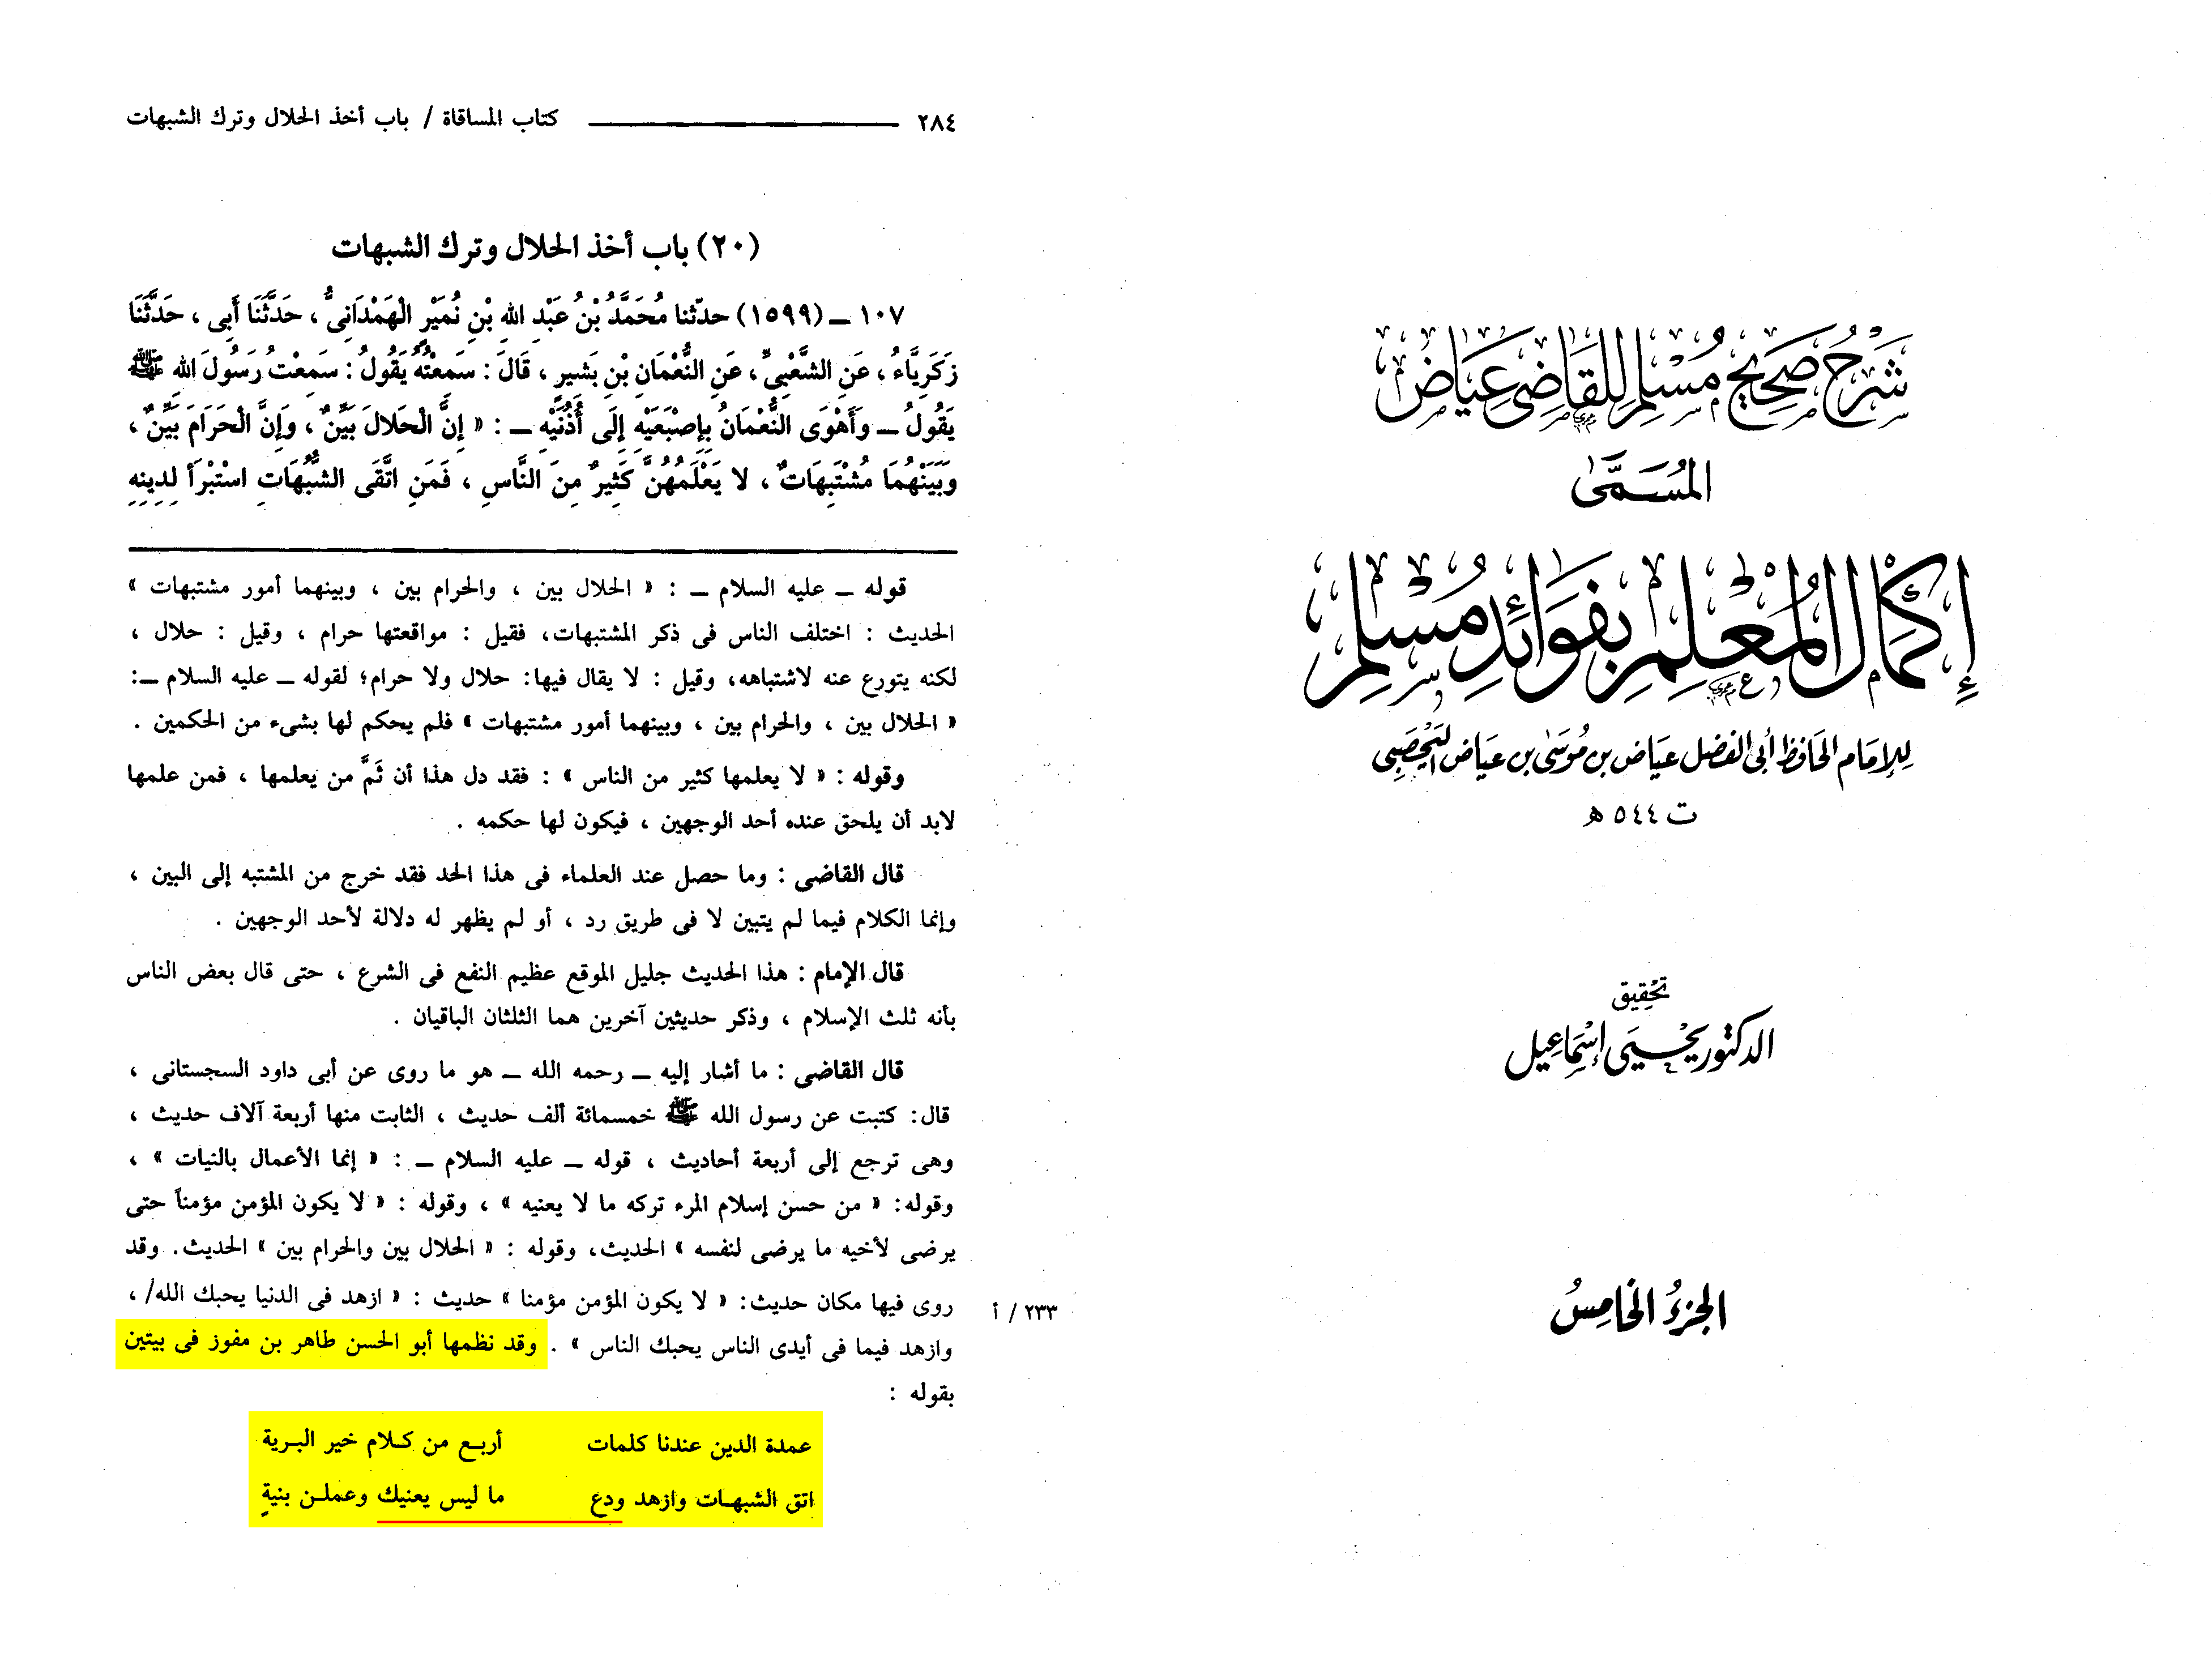 شَرْحُ صَحِيْحِ مُسْلِمِ لِلقَاضِى عِيَاض
المُسَمَّىٰ
إِكْمَالُ المُعْلِمِ بِفَوَائِدِ مُسْلِمِ
لِلإمَام الحَافِظ أبى الفضل عيَاض بن مُوسَىٰ بن عيَاض اليَحْصَبِى
ت ٥٤٤ هـ
تحْقِيق
الدكتور يَحْيَى إسْمَاعِيل
الجزءُ الخامِسُ
٢٨٤ ــــــ كتاب المساقاة / باب أخذ الحلال وترك الشبهات
(٢٠) باب أخذ الحلال وترك الشبهات
١٠٧ ــ (١٥٩٩) حدّثنا مُحَمَّدُ بْنُ عَبْدِ اللهِ بْنِ نُمَيْرٍ الْهَمْدَانِىُّ ، حَدَّثَنَا أَبِى ، حَدَّثَنَا
زَكَرِيَّاءُ ، عَنِ الشَّعْبِىِّ ، عَنِ النُّعْمَانِ بْنِ بَشِيرٍ ، قَالَ : سَمِعْتُهُ يَقُولُ : سَمِعْتُ رَسُولَ اللهِ ﷺ
يَقُولُ ــ وَأَهْوَى النُّعْمَانُ بِإِصْبَعَيْهِ إِلَى أُذُنَيْهِ ــ : « إِنَّ الْحَلالَ بَيِّنٌ ، وَإِنَّ الْحَرَامَ بَيِّنٌ ،
وَبَيْنَهُمَا مُشْتَبِهَاتٌ ، لا يَعْلَمُهُنَّ كَثِيرٌ مِنَ النَّاسِ ، فَمَنِ اتَّقَى الشُّبُهَاتِ اسْتَبْرَأَ لِدِينِهِ
قوله ــ عليه السلام ــ : « الحلال بين ، والحرام بين ، وبينهما أمور مشتبهات »
الحديث : اختلف الناس فى ذكر المشتبهات، فقيل : مواقعتها حرام ، وقيل : حلال ،
لكنه يتورع عنه لاشتباهه، وقيل : لا يقال فيها: حلال ولا حرام؛ لقوله ــ عليه السلام ــ:
« الحلال بين ، والحرام بين ، وبينهما أمور مشتبهات » فلم يحكم لها بشىء من الحكمين .
وقوله : « لا يعلمها كثير من الناس » : فقد دل هذا أن ثَمَّ من يعلمها ، فمن علمها
لابد أن يلحق عنده أحد الوجهين ، فيكون لها حكمه .
قال القاضى : وما حصل عند العلماء فى هذا الحد فقد خرج من المشتبه إلى البين ،
وإنما الكلام فيما لم يتبين لا فى طريق رد ، أو لم يظهر له دلالة لأحد الوجهين .
قال الإمام : هذا الحديث جليل الموقع عظيم النفع فى الشرع ، حتى قال بعض الناس
بأنه ثلث الإسلام ، وذكر حديثين آخرين هما الثلثان الباقيان .
قال القاضى : ما أشار إليه ــ رحمه الله ــ هو ما روى عن أبى داود السجستانى ،
قال: كتبت عن رسول الله ﷺ خمسمائة ألف حديث ، الثابت منها أربعة آلاف حديث ،
وهى ترجع إلى أربعة أحاديث ، قوله ــ عليه السلام ــ : « إنما الأعمال بالنيات » ،
وقوله: « من حسن إسلام المرء تركه ما لا يعنيه » ، وقوله : « لا يكون المؤمن مؤمناً حتى
يرضى لأخيه ما يرضى لنفسه » الحديث، وقوله : « الحلال بين والحرام بين » الحديث. وقد
روى فيها مكان حديث: « لا يكون المؤمن مؤمنا » حديث : « ازهد فى الدنيا يحبك الله/ ،
٢٣٣ / أ
وازهد فيما فى أيدى الناس يحبك الناس » . وقد نظمها أبو الحسن طاهر بن مفوز فى بيتين
بقوله :
عمدة الدين عندنا كلمات أربـع من كـلام خير البـرية
اتق الشبهـات وازهد ودع ما ليس يعنيك وعملـن بنيةٍ